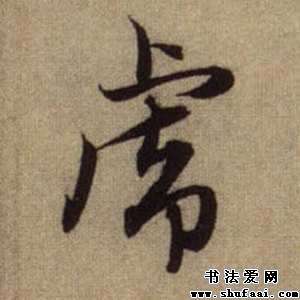 虏
书法爱网
www.shufaai.com